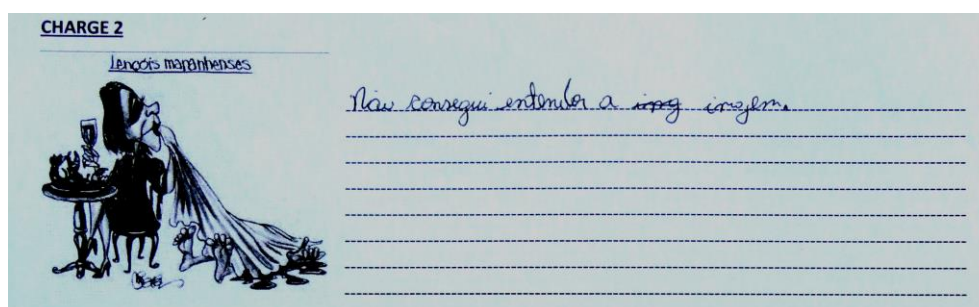 CHARGE 2
Lençóis maranhenses
Não consegui entender a img imagem.